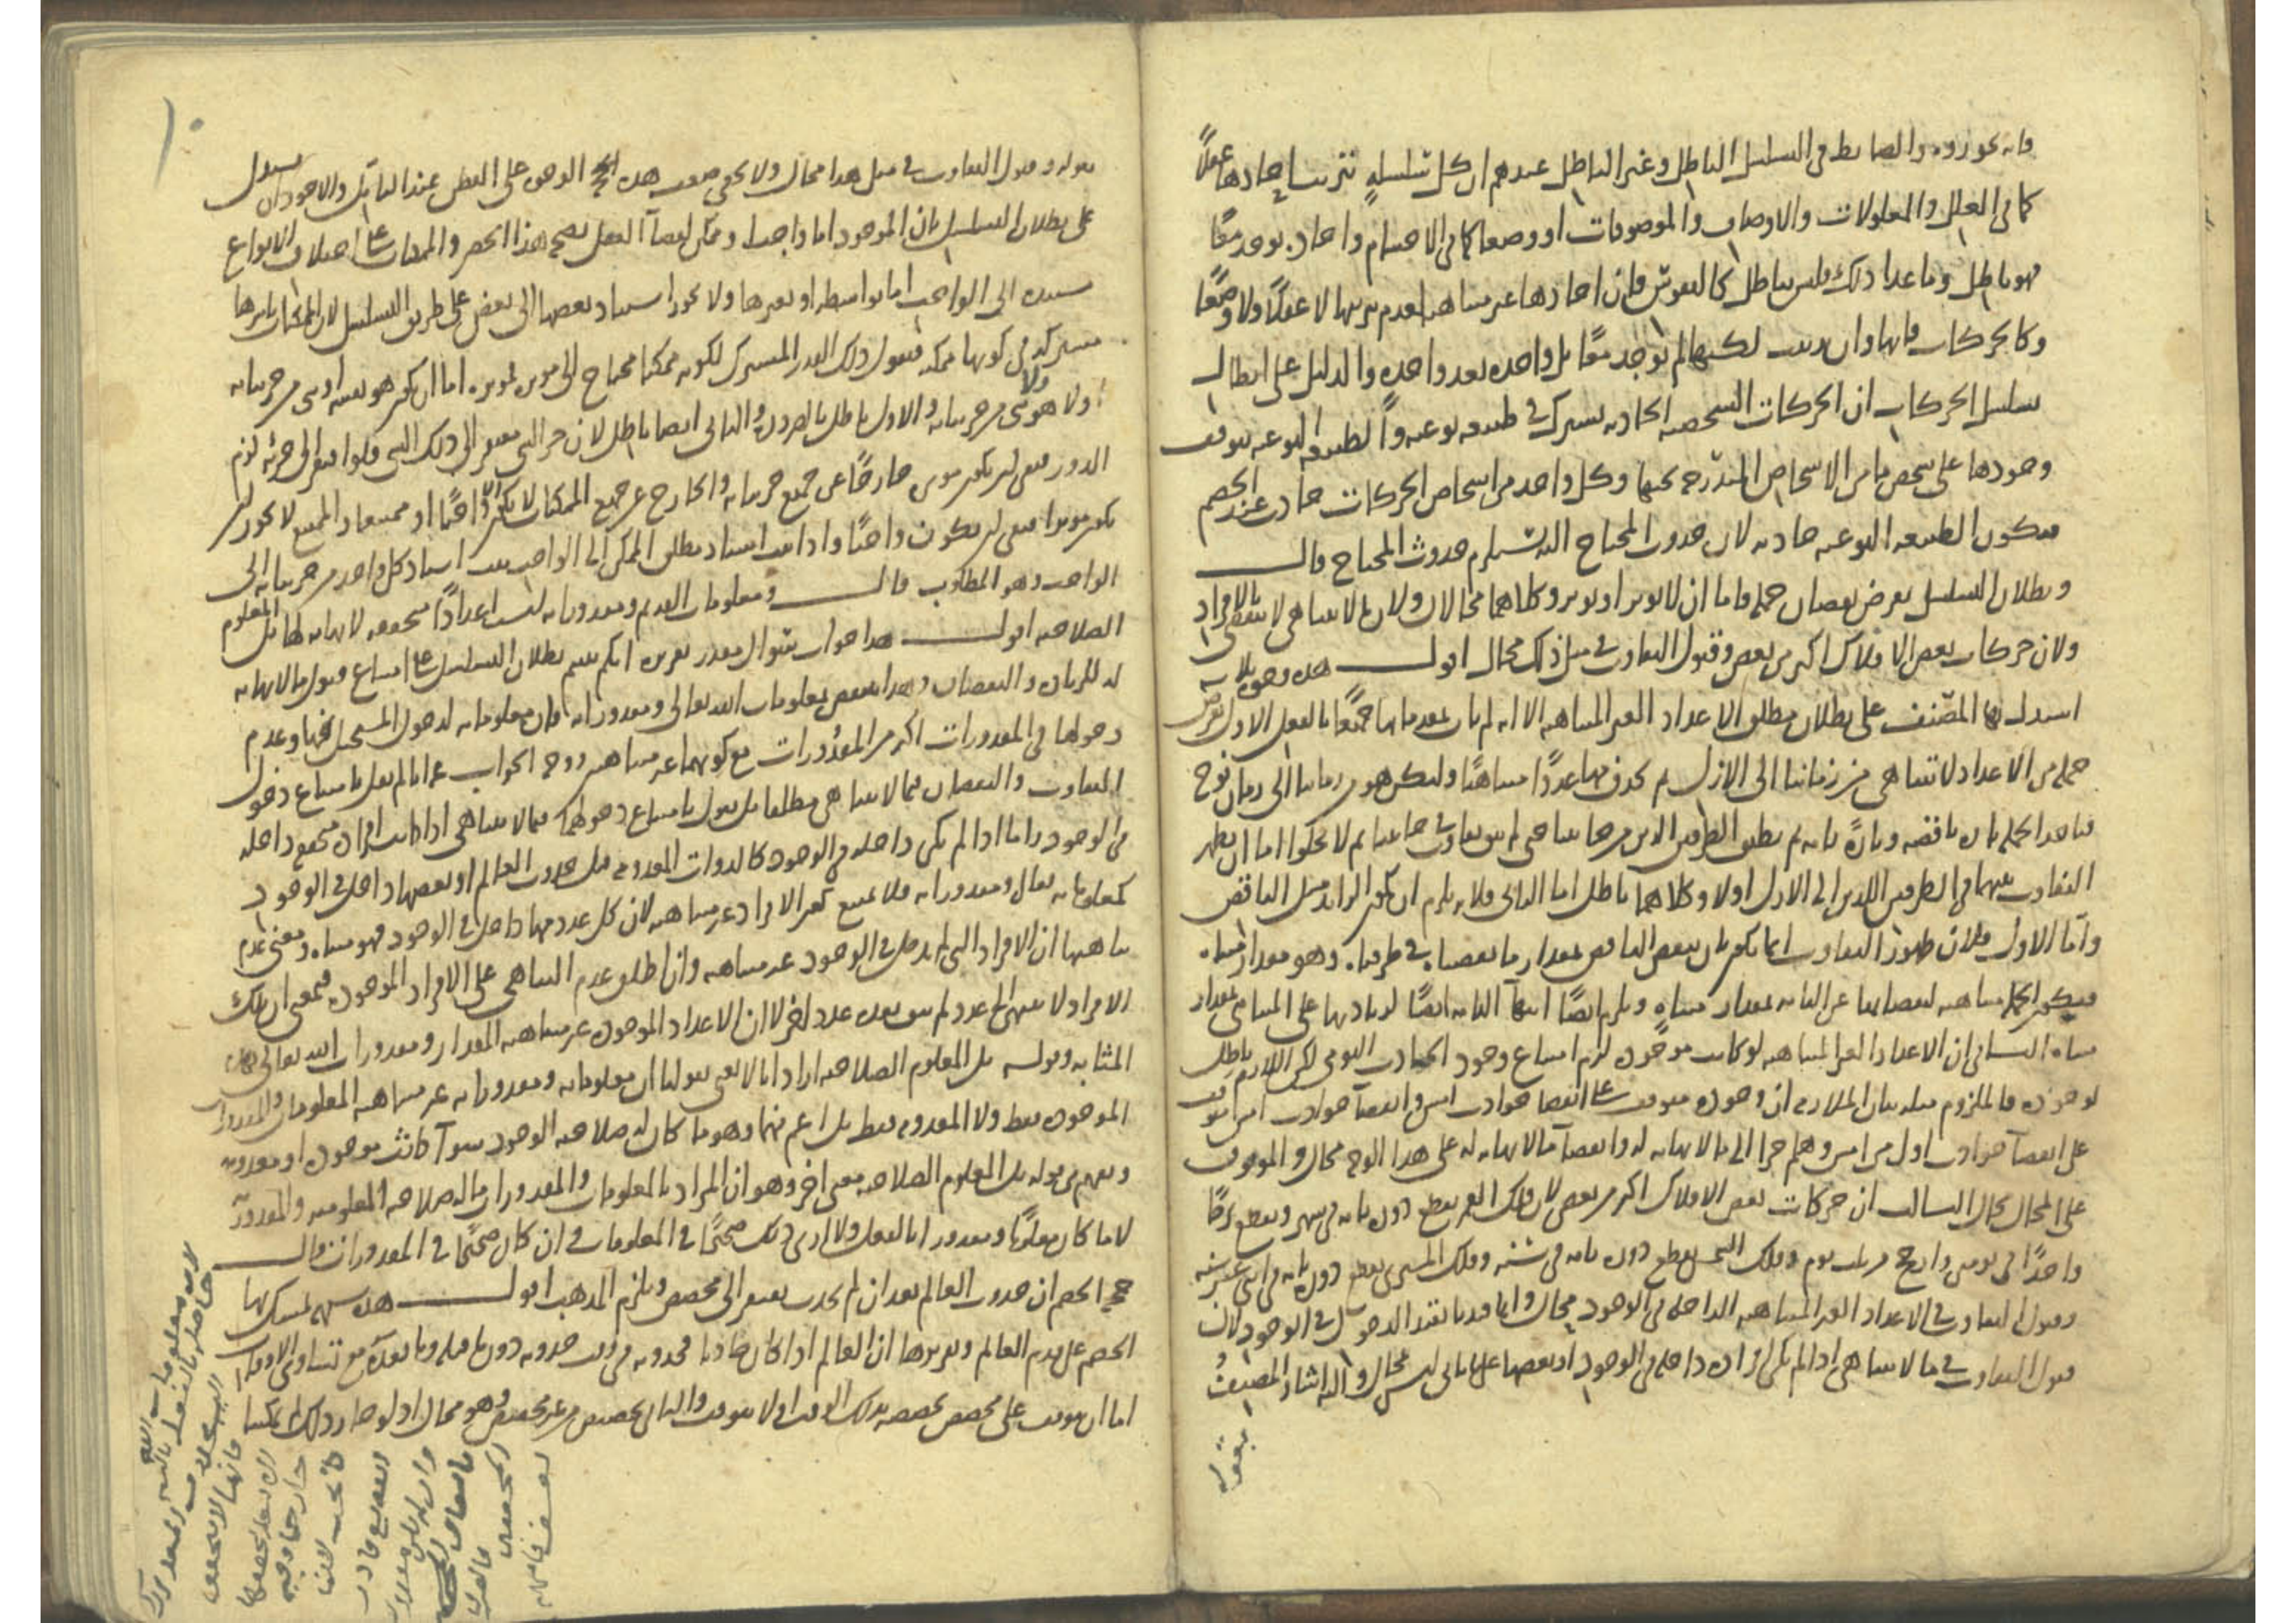 فانه يجوزوه والضابط فى التسلسل الباطل وغير الباطل عندهم ان كل سلسلة تترتب احادها عقلاً
كما فى العلل والمعلولات والاوصاف والموصوفات او وضعا كما فى الاجسام واحاده توجد معًا
فهو باطل وما عدا ذلك فليس بباطل كالنفوس فان احادها غير متناهية لعدم ترتبها لا عقلاً ولا وضعًا
وكالحركات فانها وان ترتبت لكنها لم توجد معًا بل واحده بعد واحدة والدليل على ابطال
تسلسل الحركات ان الحركات الشخصية الحادثه تشترك فى طبيعه نوعيه والطبيعة النوعيه يتوقف
وجودها على شخص ما من الاشخاص المندرجه تحتها وكل واحد من اشخاص الحركات حادث عند الخصم
فيكون الطبيعه النوعيه حادثه لان حدوث المحتاج اليه يستلزم حدوث المحتاج قال
وبطلان التسلسل بفرض نقصان جمله فاما ان لا يوثر او يوثر وكلاهما محالان ولان ما لا يتناهى لا ينقضى بالافراد
ولان حركات بعض الافلاك اكثر من بعض وقبول التفاوت فى مثل ذلك محال اقول هذه وجوه ثلاثه
استدل بها المصنف على بطلان مطلق الاعداد الغير المتناهيه الا انه لم يات بمقدماتها جميعًا بالفعل الاول نفرض
جمله من الاعداد لا تتناهى من زماننا الى الازل ثم نحذف منها عددًا متناهيًا وليكن هو من زماننا الى زمان نوح
فناخذ الجمله تارة ناقصه وتارةً تامه ثم نطبق الطرفين الذين من جانبنا حتى لم يبق تفاوت فى جانبنا ثم لا يخلوا اما ان يظهر
التفاوت بينهما فى الطرفين اللذين الى الازل اولا وكلاهما باطل اما الثانى فلانه يلزم ان يكون الزايد مثل الناقص
واما الاول فلان ظهور التفاوت انما يكون بان ينقص الناقص بمقدار ما نقصناه فى طرفنا وهو مقدار متناه
فيكون الجمله متناهيه لنقصانها عن التامه بمقدار متناهٍ ويلزم ايضًا انتهآ التامه ايضًا لزيادتها على المتناهى بمقدار
متناه الثانى ان الاعداد الغير المتناهيه لو كانت موجوده لزم امتناع وجود الحادث اليومى لكن اللازم باطل
لوجوده فالملزوم مثله بيان الملازمه ان وجوده متوقف على انقضا حوادث امس وانقضآ حوادث امس متوقف
على انقضآ حوادث اول من امس وهلم جرا الى ما لا نهايه له وانقضآ ما لا نهايه له على هذا الوجه محال والموقوف
على المحال محال الثالث ان حركات بعض الافلاك اكثر من بعض لان فلك القمر يقطع دوره تامه فى شهر ويقطع برجًا
واحدًا فى يومين وارجح من ثلث يوم وفلك الشمس يقطع دوره تامه فى سنه وفلك المشترى يقطع دوره تامه فى اثنى عشر سنه
وقبول التفاوت فى الاعداد الغير المتناهيه الداخله فى الوجود محال وانما قيدنا بقيد الدخول فى الوجود لان
قبول التفاوت فى ما لا يتناهى اذا لم يكن افراده داخله فى الوجود او بعضها على ما ياتى ليس بمحال واليه اشار المصنف
بقوله
١٠
بقوله وقبول التفاوت فى مثل هذا محال ولا يخفى ضعف هذه الوجوه على الفطن عند التامل والاجود ان يستدل
على بطلان التسلسل بان الموجود اما واجب او ممكن لقضآ العقل بصحه هذا الحصر والممكنات على اختلاف الانواع
مستنده الى الواجب اما بواسطه او بغيرها ولا يجوز استناد بعضها الى بعض على طريق التسلسل لان الممكنات باسرها
مشتركه فى كونها ممكنه فنقول ذلك القدر المشترك لكونه ممكنا محتاج الى موثر فموثره اما ان يكون هو نفسه او شى من جزئياته
او لا هو ولا شى من جزئياته والاول باطل بالضرورة والثانى ايضا باطل لان جزء الشى مفتقر الى ذلك الشى فلو افتقر الى جزئه لزم
الدور فبقى ان يكون موثره خارجًا عن جميع جزئياته والخارج عن جميع الممكنات لا يكون الا واجبًا او ممتنعا والممتنع لا يجوز ان
يكون موثرا فبقى ان يكون واجبًا واذا ثبت استناد مطلق الممكن الى الواجب ثبت استناد كل واحد من جزئياته الى
الواجب وهو المطلوب قال ومعلومات القديم ومقدوراته ليست اعدادًا متحققه لا نهايه لها بل المعلوم
الصلاحيه اقول هذا جواب سوال مقدر تقريره انكم بنيتم بطلان التسلسل على امتناع قبول ما لا نهايه
له للزياده والنقصان وهذا ينتقض بمعلومات الله تعالى ومقدوراته فان معلوماته لدخول المستحيل فيها وعدم
دخولها فى المقدورات اكثر من المقدورات مع كونهما غير متناهيين ووجه الجواب عنه انا لم نقل بامتناع دخول
التفاوت والنقصان فيما لا يتناهى مطلقا بل نقول بامتناع دخولهما فيما لا يتناهى اذا كانت افراده متحققه داخله
فى الوجود واما اذا لم يكن داخله فى الوجود كالذوات المعدومه قبل حدوث العالم او بعضها داخل فى الوجود
كمعلوماته تعالى ومقدوراته فلا يمتنع كون الافراد غير متناهيه لان كل عدد منها داخل فى الوجود فهو متناه ومعنى عدم
تناهيها ان الافراد التى لم يدخل فى الوجود غير متناهيه وان اطلق عدم التناهى على الافراد الموجوده فبمعنى ان تلك
الافراد لا ينتهى الى عدد لم يبق بعده عدد اخر لا ان الاعداد الموجوده غير متناهيه المقدار ومقدورات الله تعالى بهذه
المثابه وقوله بل المعلوم الصلاحيه اراد انا لا نعنى بقولنا ان معلوماته ومقدوراته غير متناهيه المعلومات والمقدورات
الموجوده فقط ولا المعدومه فقط بل اعم منهما وهو ما كان له صلاحيه الوجود سوآ كانت موجوده او معدومه
ويفهم من قوله بل المعلوم الصلاحيه معنى اخر وهو ان المراد بالمعلومات والمقدورات ما له صلاحيه المعلوميه والمقدوريه
لا ما كان معلومًا ومقدورا بالفعل ولا ارى ذلك صحيحًا فى المعلومات وان كان صحيحًا فى المقدورات قال
حجه الخصم ان حدوث العالم بعد ان لم يحدث يفتقر الى مخصص ويلزم المذهب اقول هذه شبهه تمسك بها
الخصم على قدم العالم وتقريرها ان العالم اذا كان حادثا فحدوثه فى وقت حدوثه دون ما قبله وما بعده مع تساوى الاوقات
اما ان يتوقف على مخصص يخصصه بذلك الوقت او لا يتوقف والثانى تخصيص من غير مخصص وهو محال اذ لو جاز ذلك لما امكننا
لان معلومات الله
حاصله بالفعل